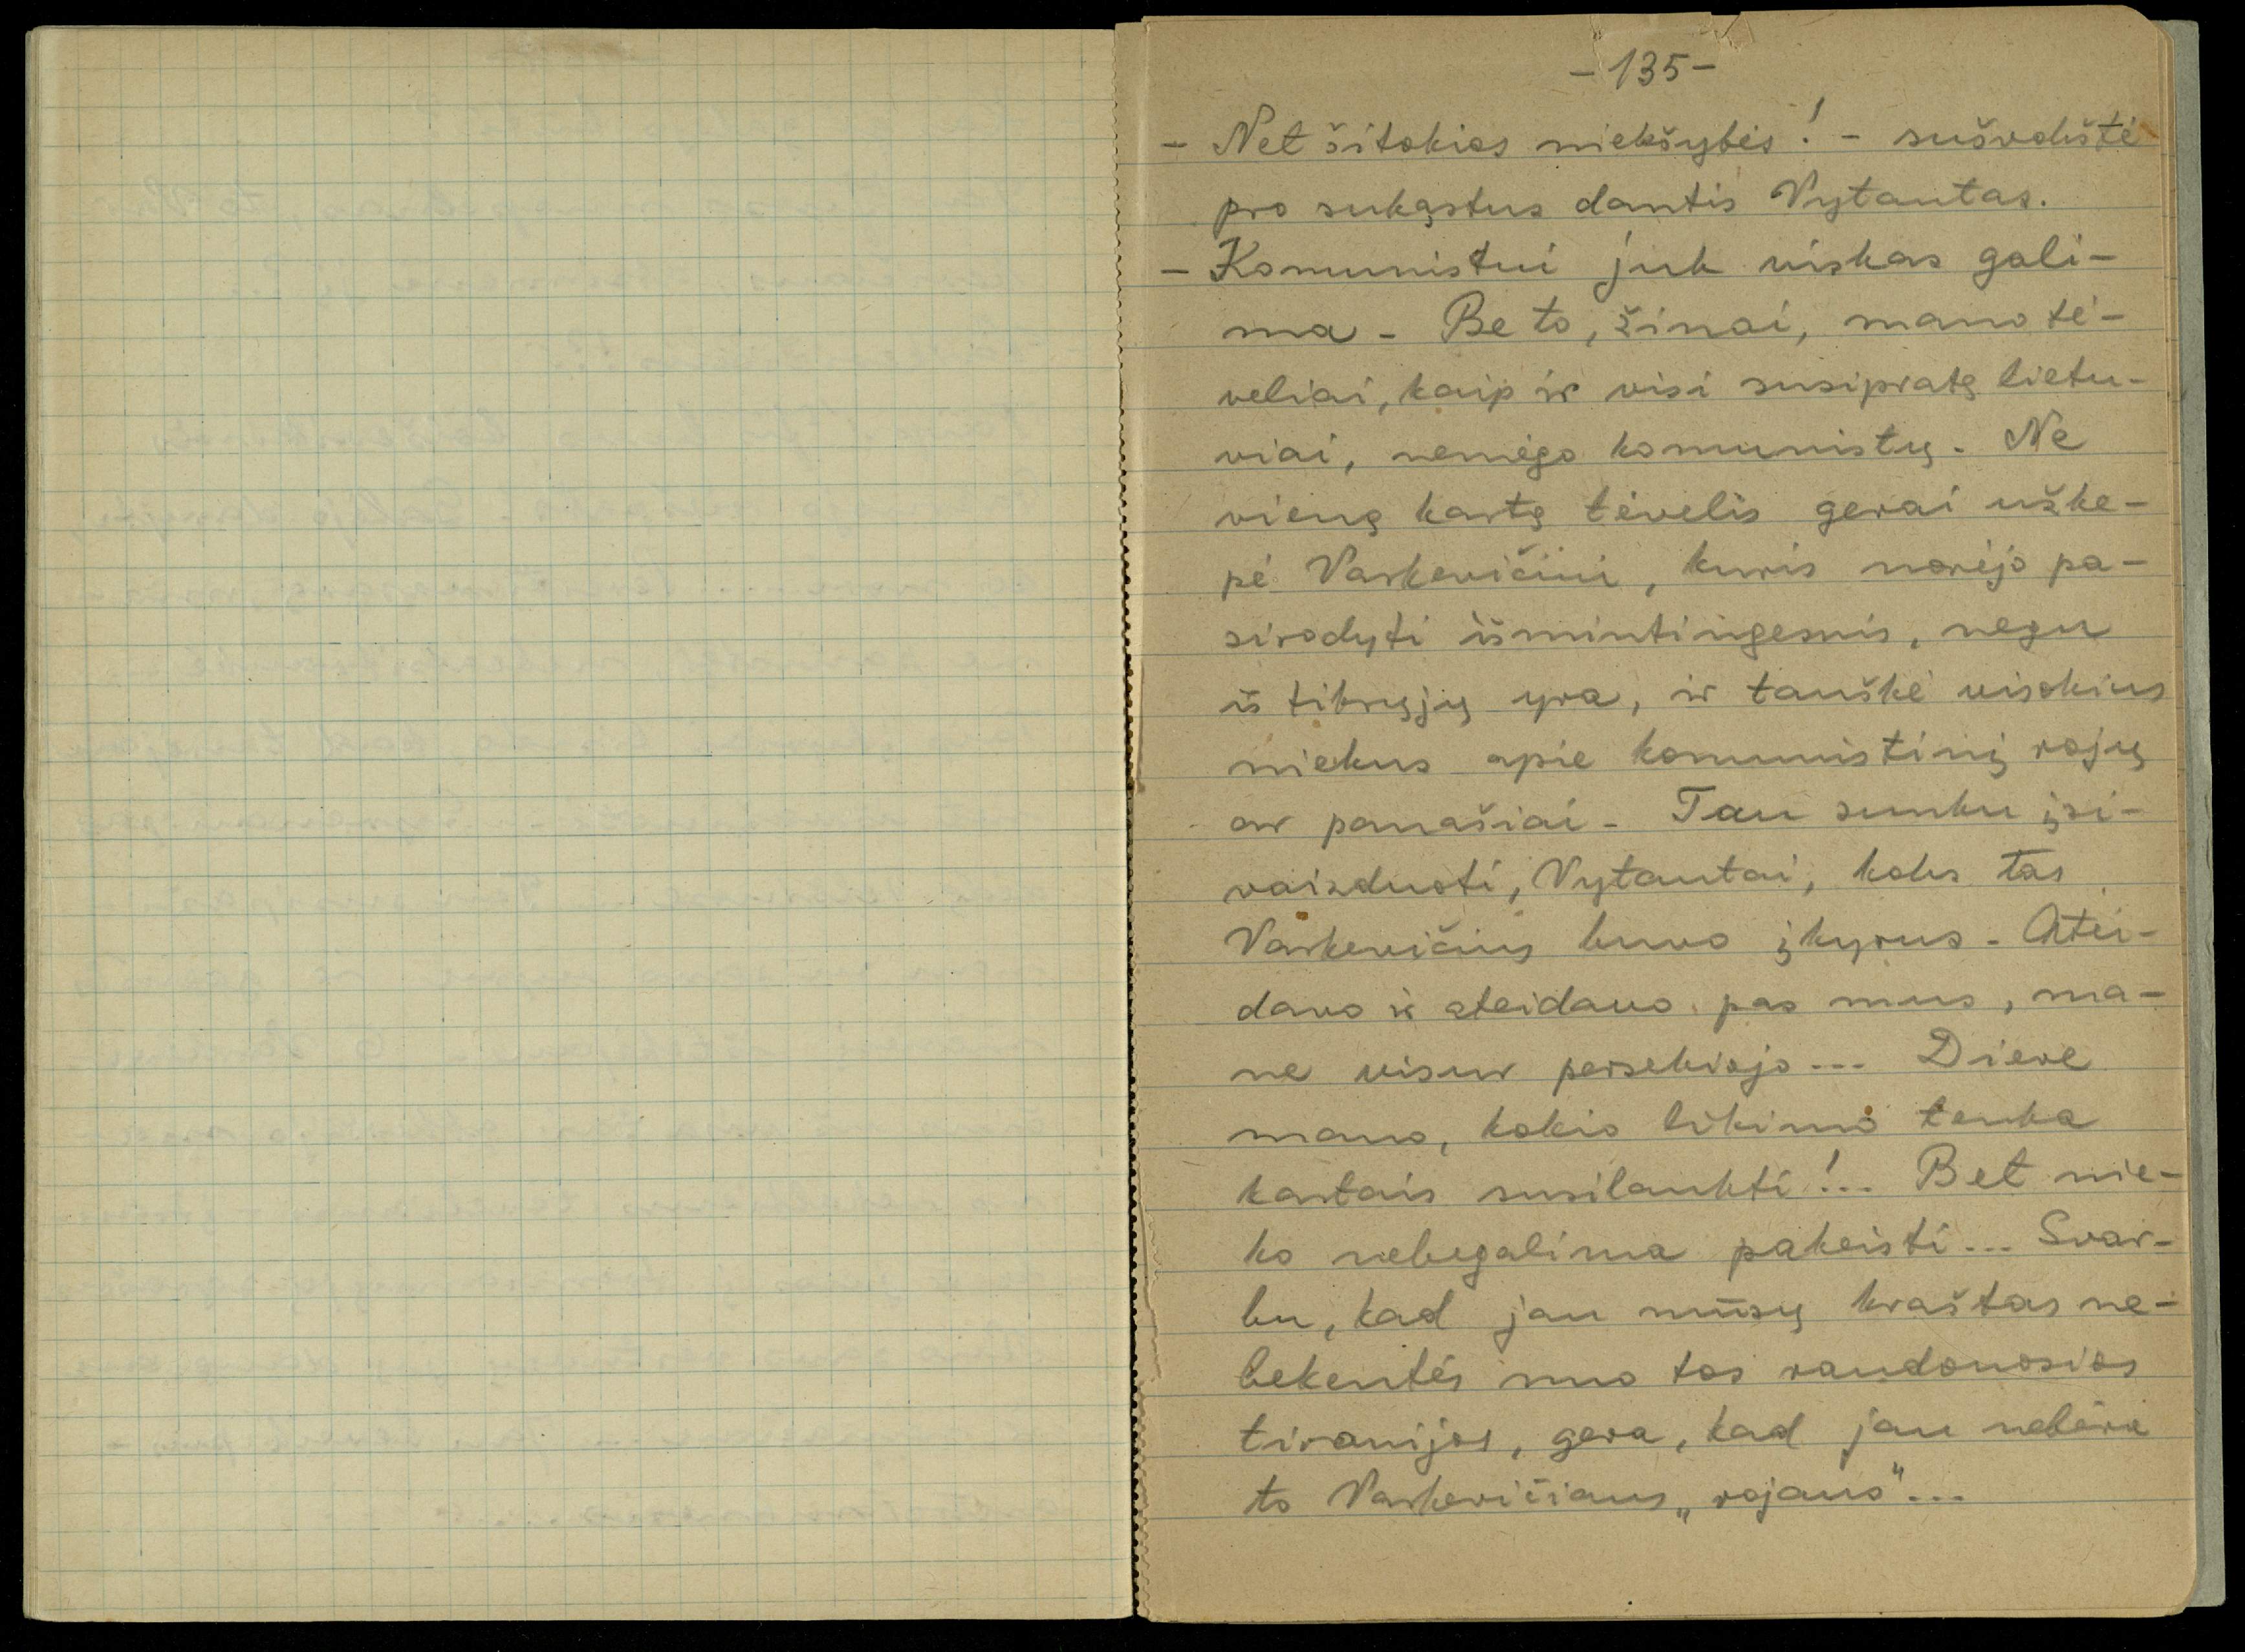 -135-
- Net šitokios niekšybės! - sušvokštė
pro sukąstus dantis Vytautas.
- Komunistui juk viskas gali-
ma - Be to, žinai, mano tė-
veliai, kaip ir visi susipratę lietu-
viai, nemėgo komunistų. Ne
vieną kartą tėvelis gerai užke-
pė Vaskevičiui, kuris norėjo pa-
sirodyti išmintingesnis, negu
iš tikrųjų yra, ir tauškė visokius
niekus apie komunistinį rojų
ar panašiai - Tau sunku įsi-
vaizduoti, Vytautai, koks tas
Vaskevičius buvo įkyrus - Atei-
davo ir ateidavo pas mus, ma-
ne visur persekiojo... Dieve
mano, kokio likimo tenka
kartais susilaukti!... Bet nie-
ko nebegalima pakeisti... Svar-
bu, kad jau mūsų kraštas ne-
bekentės nuo tos raudonosios
tironijos, gera, kad jau nebėra
to Vaskevičiaus „rojaus"...